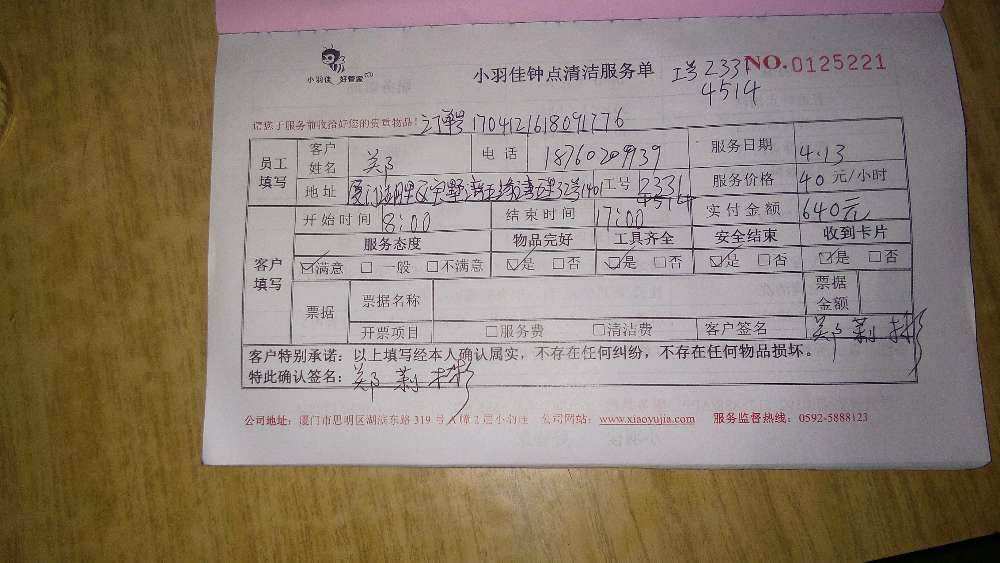 小羽佳 好管家
小羽佳钟点清洁服务单 工号 2331 NO.0125221
4514
请您于服务前收给好您的贵重物品! 订单号 1704121618091776
员工填写 客户姓名 郑 电话 18760209939 服务日期 4.13
地址 厦门 32号1401 工号 2331 4514 服务价格 40 元/小时
客户填写 开始时间 8:00 结束时间 17:00 实付金额 640元
服务态度 物品完好 工具齐全 安全结束 收到卡片
☑满意 □一般 □不满意 ☑是 □否 ☑是 □否 ☑是 □否 ☑是 □否
票据 票据名称 票据金额
开票项目 □服务费 □清洁费 客户签名 郑
客户特别承诺:以上填写经本人确认属实,不存在任何纠纷,不存在任何物品损坏。
特此确认签名: 郑
公司地址:厦门市思明区湖滨东路 319 号 A 幢 2 层小羽佳 公司网站:www.xiaoyujia.com 服务监督热线:0592-5888123